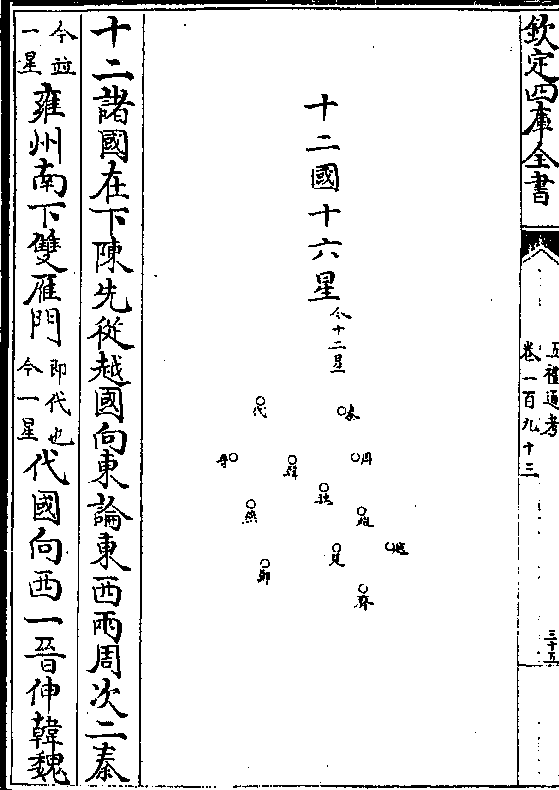 欽定四庫全書
五禮通考
卷一百九十三
三十五
十二國十六星
今十二星
秦
代
周
韓
晉
魏
趙
燕
越
楚
鄭
齊
十二諸國在下陳先從越國向東論東西兩周次二秦
今並
一星
雍州南下雙雁門
即代也
今一星
代國向西一晉伸韓魏